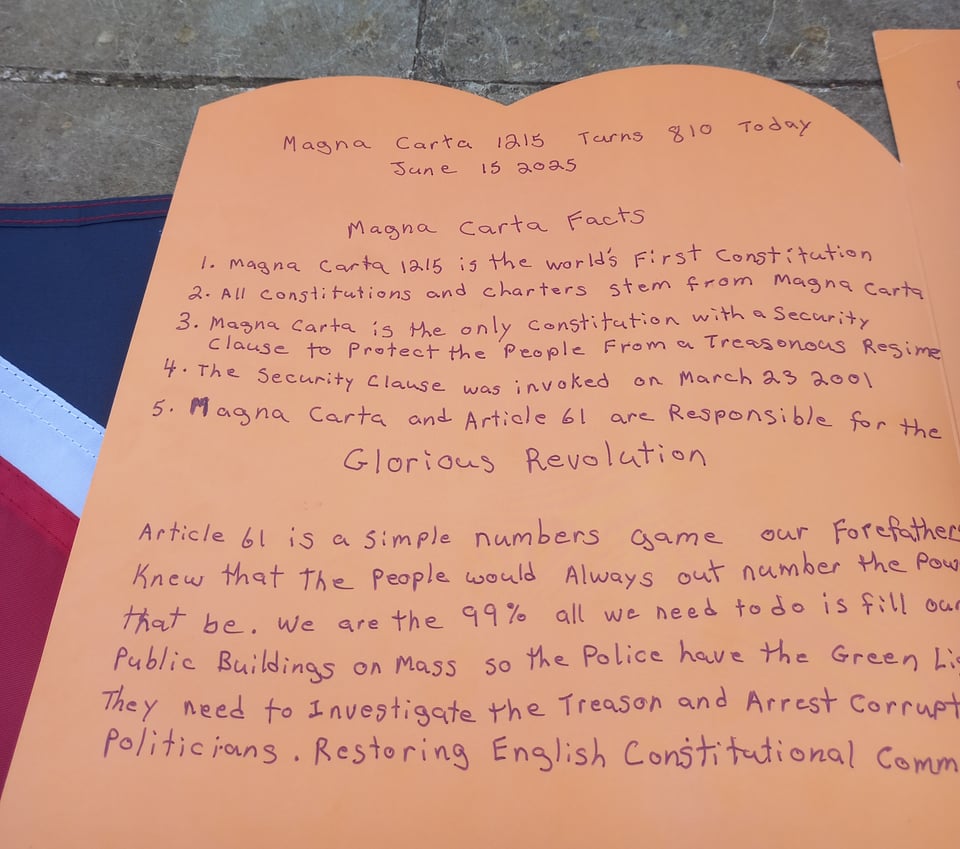 Magna Carta 1215 Turns 810 Today
June 15 2025
Magna Carta Facts
1. Magna Carta 1215 is the world's First Constitution
2. All Constitutions and Charters stem from Magna Carta
3. Magna Carta is the only Constitution with a Security
Clause to Protect the People From a Treasonous Regime
4. The Security Clause was invoked on March 23 2001
5. Magna Carta and Article 61 are Responsible for the
Glorious Revolution
Article 61 is a simple numbers game our Forefather
Knew that The People would Always out number the Pow
that be. We are the 99% all we need to do is fill our
Public Buildings on Mass so the Police have the Green Li
They need to Investigate the Treason and Arrest Corrupt
Politicians. Restoring English Constitutional Comm